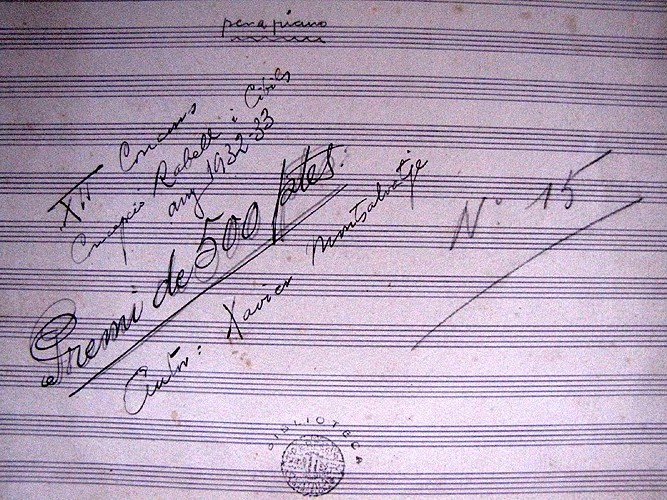 per a piano
XII Concurs
Concepció Rabell i Cibils
any 1932-33
Premi de 500 ptes.
Autor: Xavier Montsalvatje
Nº 15
BIBLIOTECA